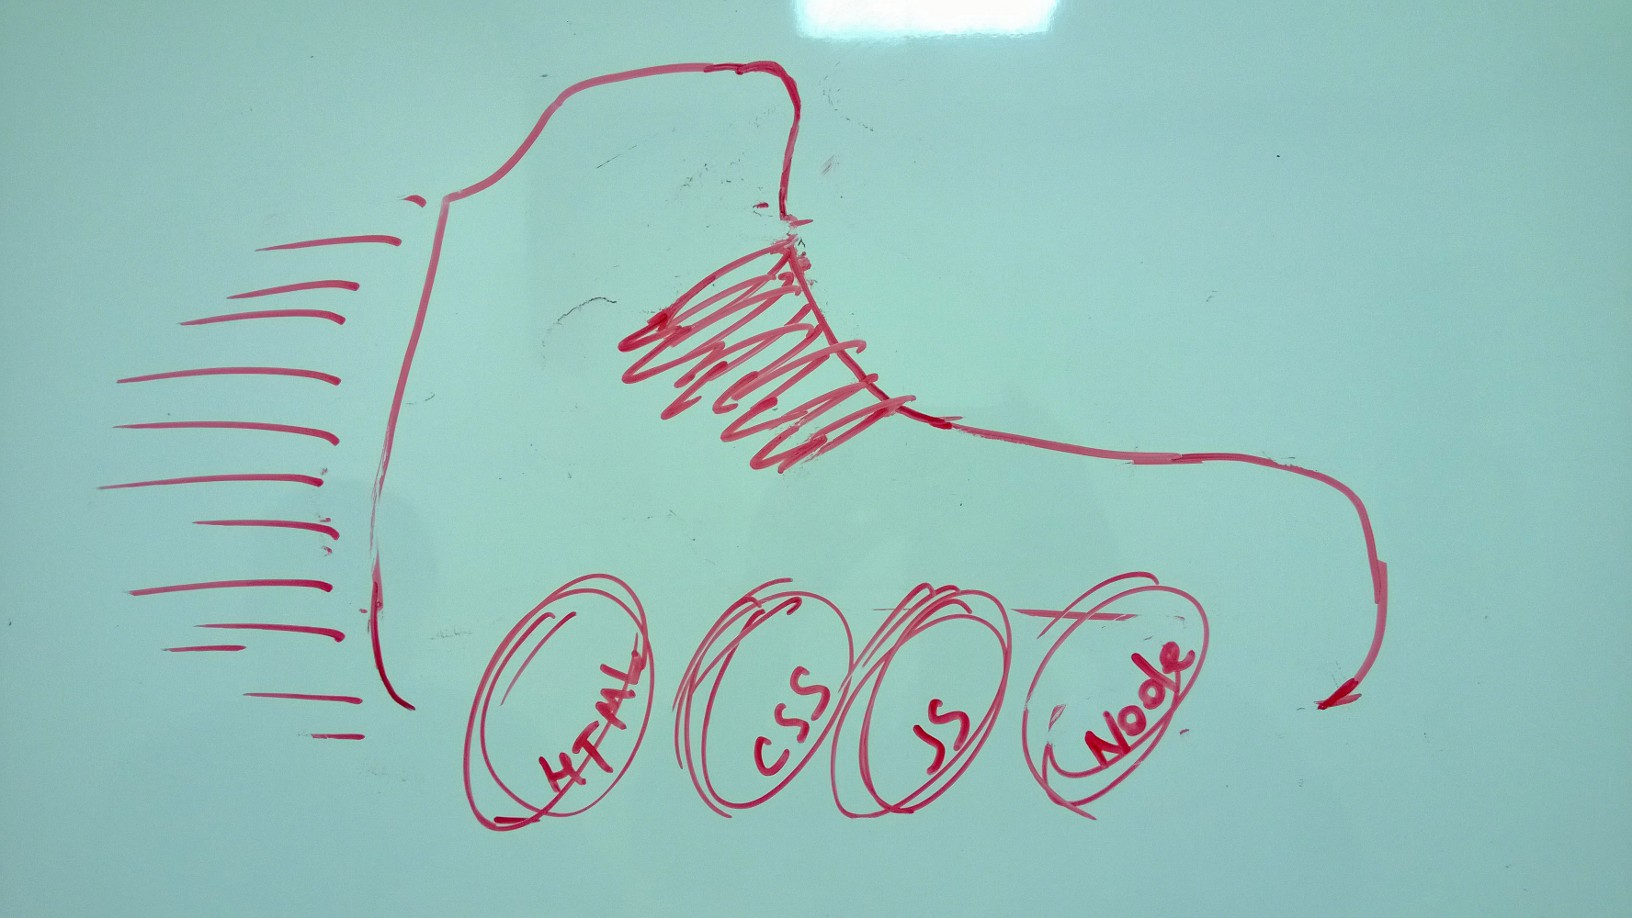 HTML
CSS
JS
Node